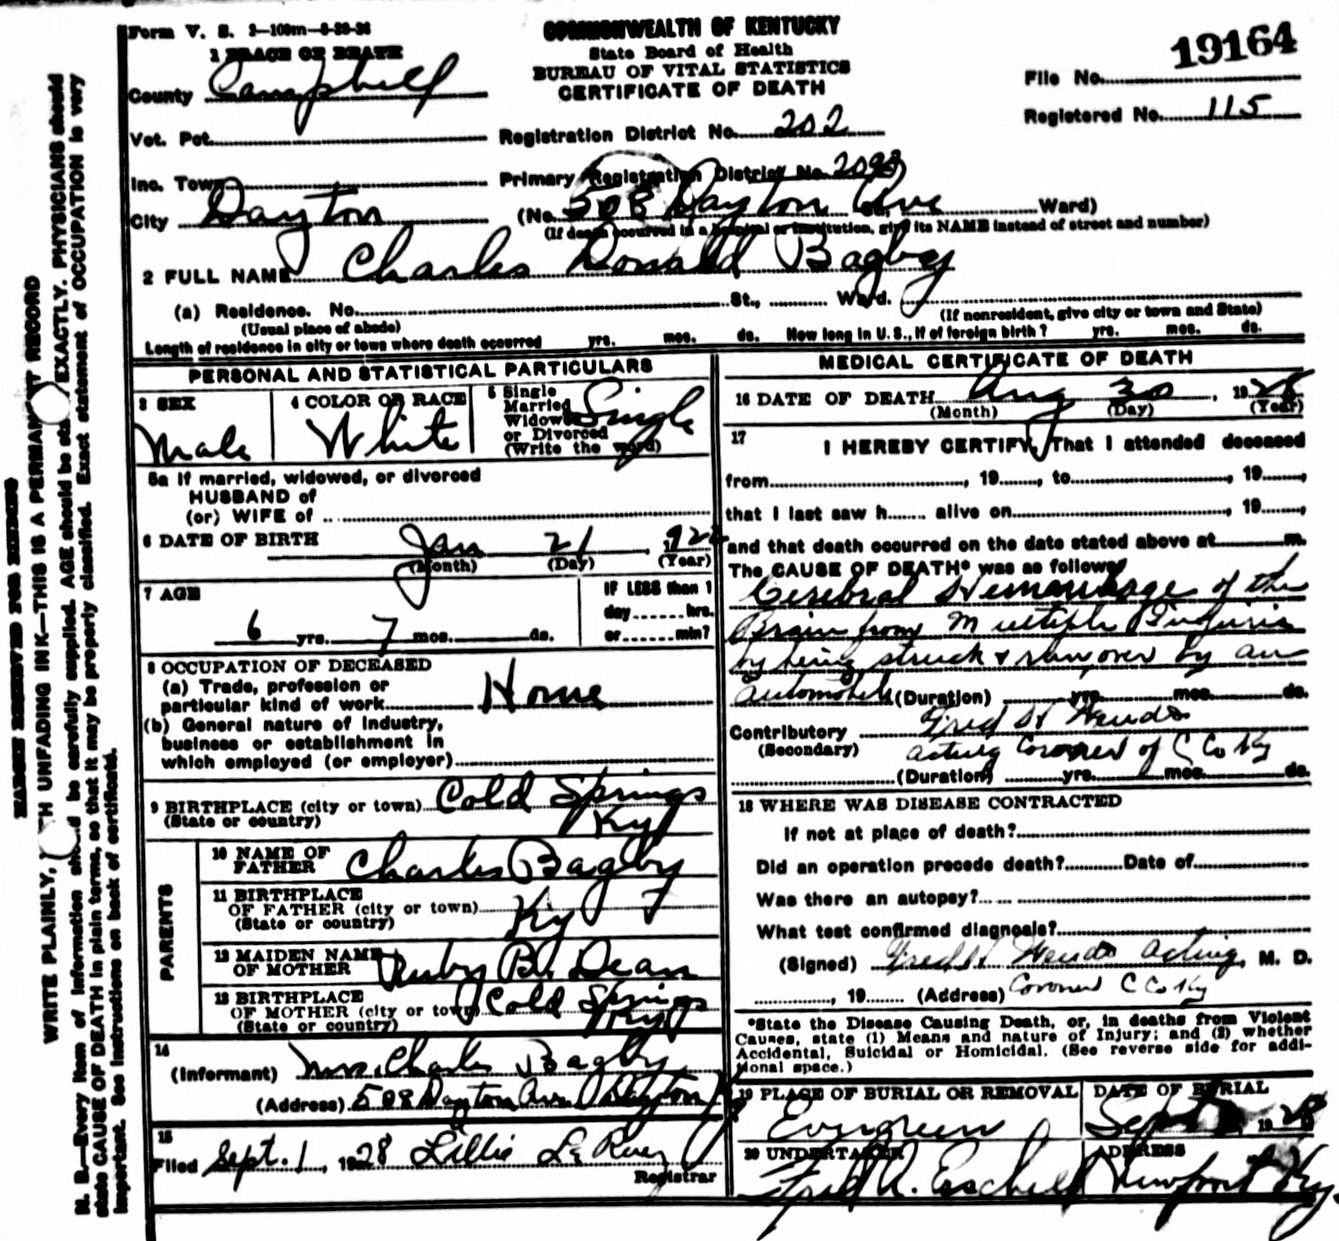 Form V. S. 2-100m-6-28-26
COMMONWEALTH OF KENTUCKY
State Board of Health
BUREAU OF VITAL STATISTICS
CERTIFICATE OF DEATH
File No. 19164
Registered No. 115
1 PLACE OF DEATH
County Campbell
Vot. Pct.
Registration District No. 202
Inc. Town
Primary Registration District No. 2093
City Dayton
(No. 508 Dayton Ave St., Ward)
(If death occurred in a hospital or institution, give its NAME instead of street and number)
2 FULL NAME Charles Donald Bagby
(a) Residence. No. St., Ward.
(Usual place of abode)
(If nonresident, give city or town and State)
Length of residence in city or town where death occurred yrs. mos. ds. How long in U. S., if of foreign birth? yrs. mos. ds.
PERSONAL AND STATISTICAL PARTICULARS
3 SEX
Male
4 COLOR OR RACE
White
5 Single
Married
Widowed
or Divorced
(Write the word)
Single
5a If married, widowed, or divorced
HUSBAND of
(or) WIFE of
6 DATE OF BIRTH Jan 21, 1922
(Month) (Day) (Year)
7 AGE
6 yrs. 7 mos. ds.
IF LESS than 1
day hrs.
or min?
8 OCCUPATION OF DECEASED
(a) Trade, profession or
particular kind of work Home
(b) General nature of Industry,
business or establishment in
which employed (or employer)
9 BIRTHPLACE (city or town) Cold Springs
(State or country) Ky
PARENTS
10 NAME OF
FATHER Charles Bagby
11 BIRTHPLACE
OF FATHER (city or town)
(State or country) Ky
12 MAIDEN NAME
OF MOTHER Ruby B. Dean
13 BIRTHPLACE
OF MOTHER (city or town) Cold Springs
(State or country) Ky
14
(Informant) Mrs. Charles Bagby
(Address) 508 Dayton Ave Dayton Ky
15
Filed Sept. 1, 1928 Lillie
Registrar
MEDICAL CERTIFICATE OF DEATH
16 DATE OF DEATH Aug 30, 1928
(Month) (Day) (Year)
17
I HEREBY CERTIFY, That I attended deceased
from , 19 , to , 19 ,
that I last saw h alive on , 19 ,
and that death occurred on the date stated above at m.
The CAUSE OF DEATH* was as follows:
Cerebral Hemorrhage of the
Brain from Multiple Injuries
by being struck & run over by an
automobile (Duration) yrs. mos. ds.
Contributory Fred H
(Secondary) acting Coroner of C Co Ky
(Duration) yrs. mos. ds.
18 WHERE WAS DISEASE CONTRACTED
If not at place of death?
Did an operation precede death? Date of
Was there an autopsy?
What test confirmed diagnosis?
(Signed) Fred H acting, M. D.
, 19 (Address) Coroner C Co Ky
*State the Disease Causing Death, or, in deaths from Violent
Causes, state (1) Means and nature of Injury; and (2) whether
Accidental, Suicidal or Homicidal. (See reverse side for addi-
tional space.)
19 PLACE OF BURIAL OR REMOVAL
Evergreen
DATE OF BURIAL
Sept , 1928
20 UNDERTAKER
Fred A.
ADDRESS
Newport Ky.
MARGIN RESERVED FOR BINDING
WRITE PLAINLY, WITH UNFADING INK—THIS IS A PERMANENT RECORD
N. B.—Every item of information should be carefully supplied. AGE should be stated EXACTLY. PHYSICIANS should
state CAUSE OF DEATH in plain terms, so that it may be properly classified. Exact statement of OCCUPATION is very
important. See instructions on back of certificate.